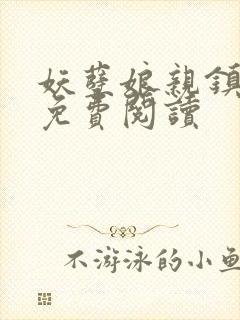 妖孽娘親鎮
免費閱讀
不游泳的小魚